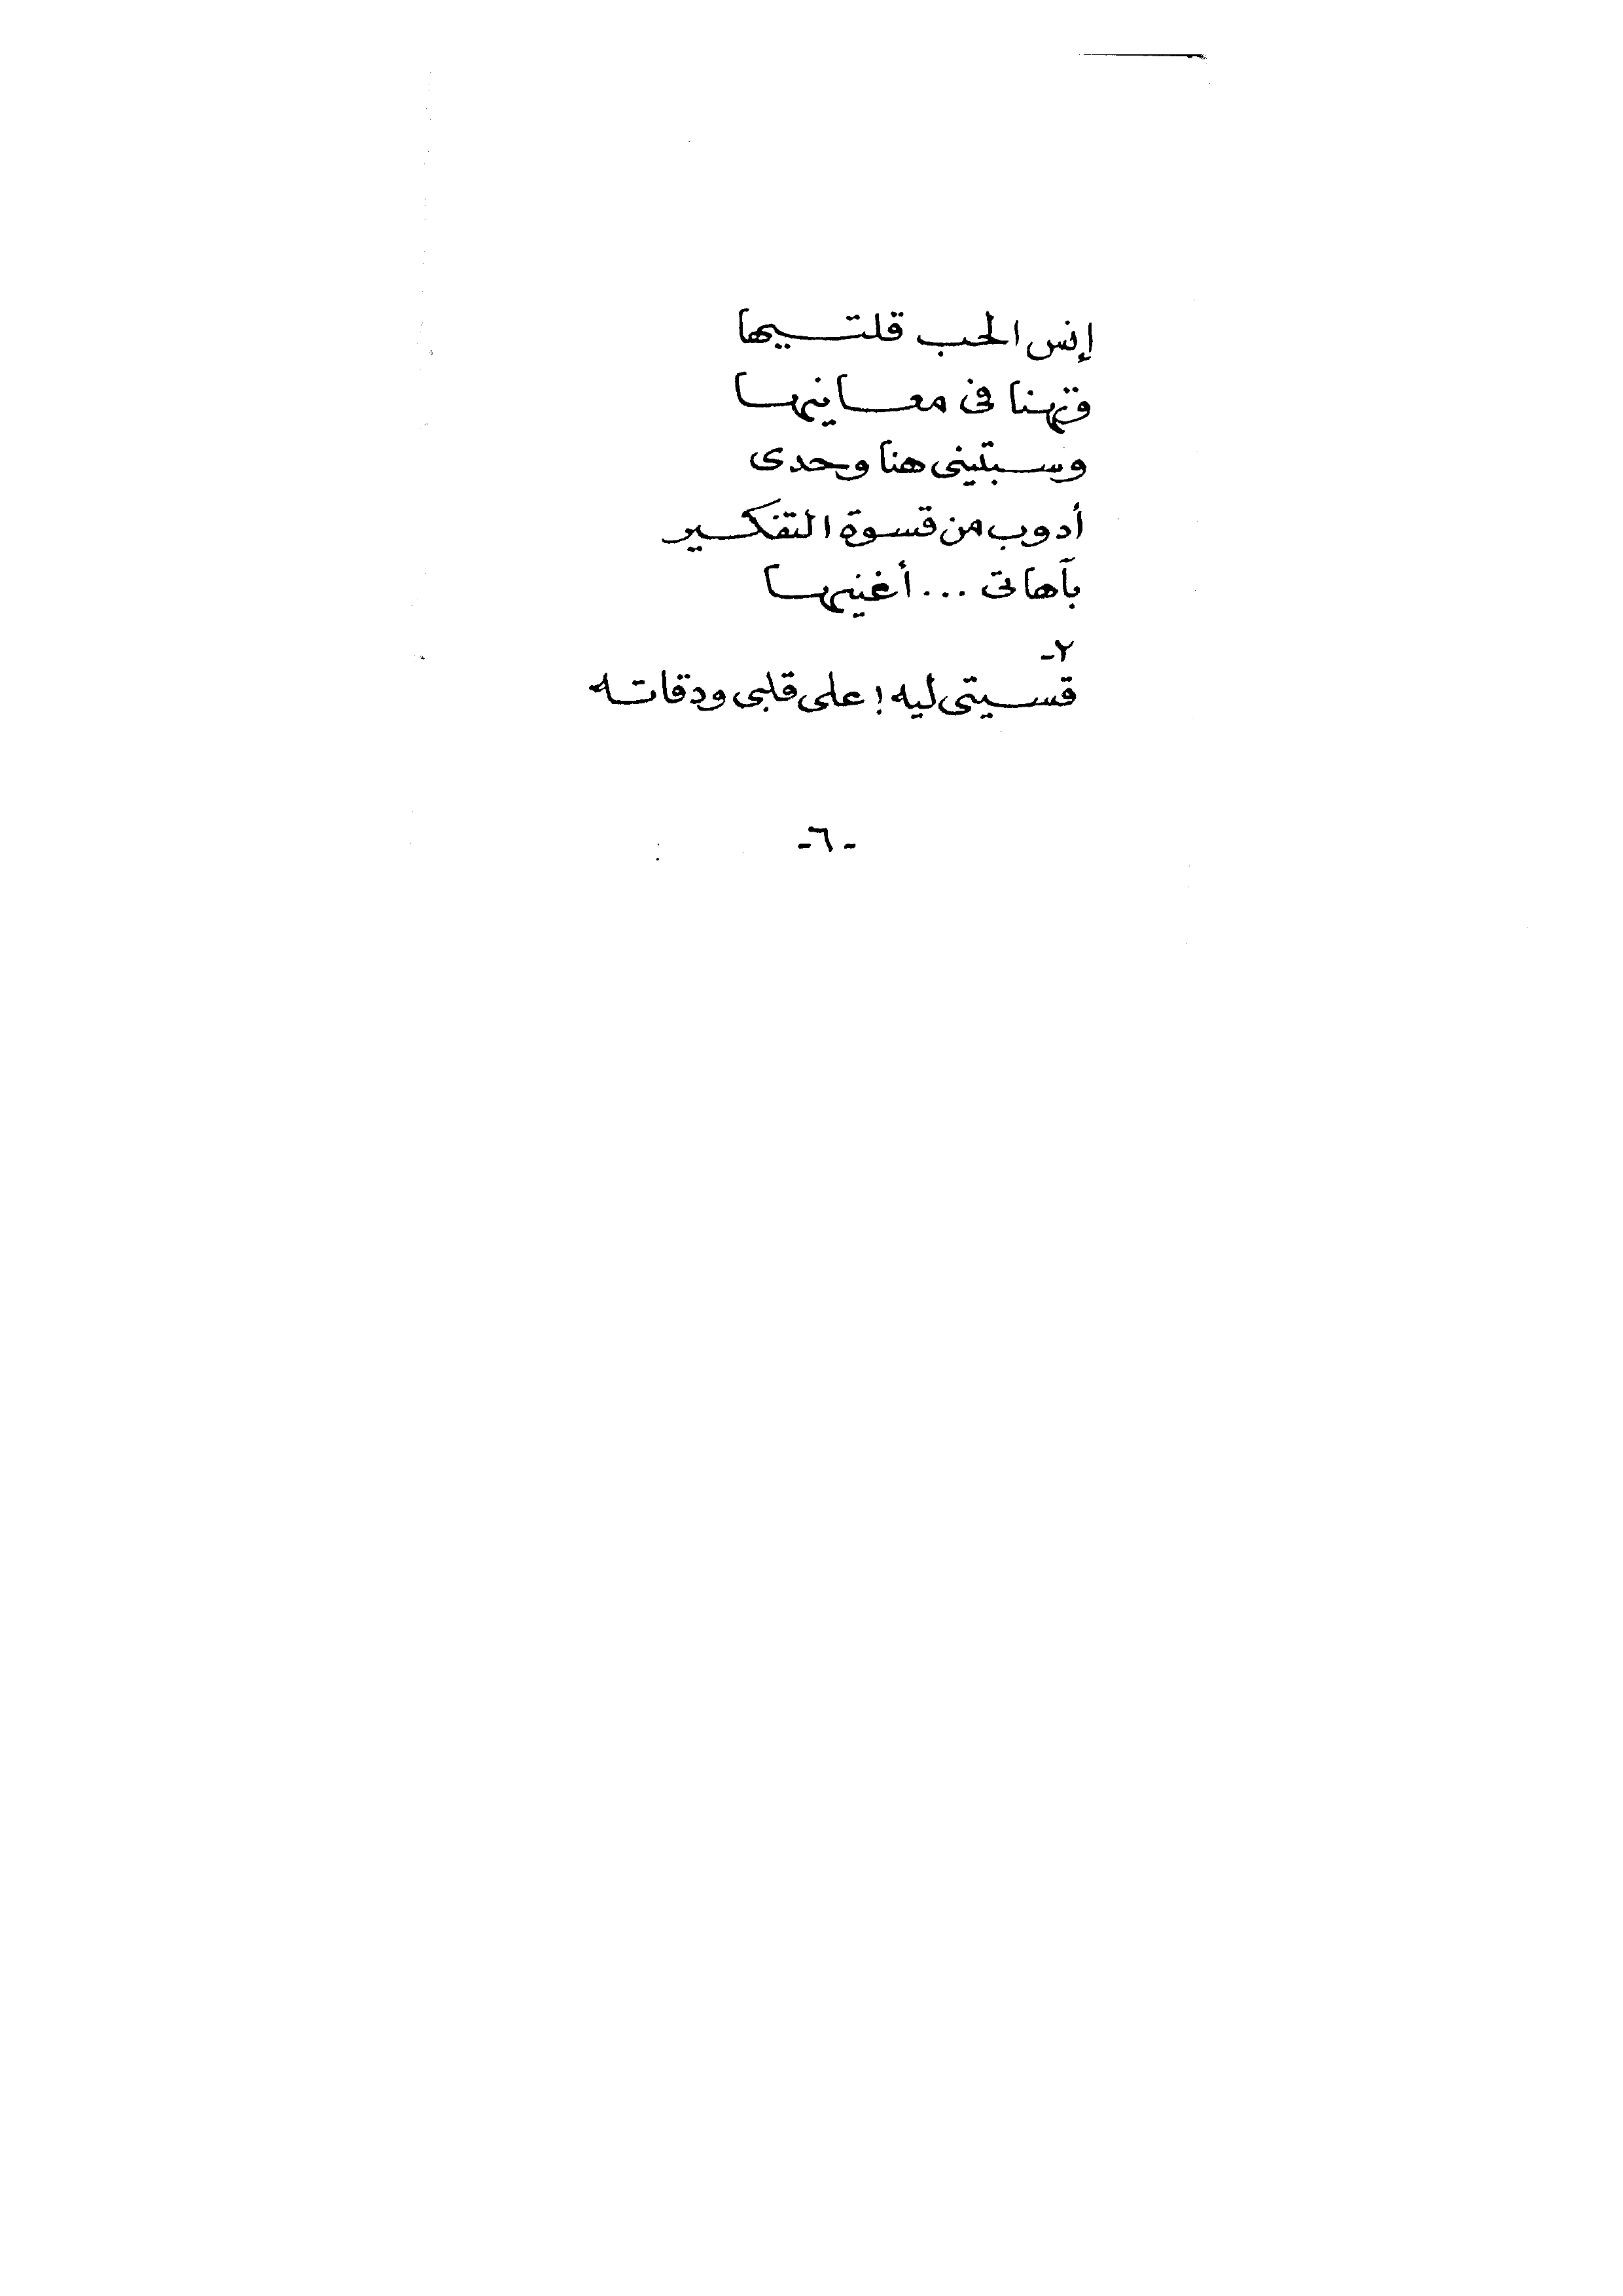 إنس الحب قلتيها
وتهنا فى معانيها
وسبتينى هنا وحدى
أدوب من قسوة التفكير
بآهاتى ... أغنيها
٢-
قسيتى ليه ! على قلبى ودقاته
- ٦ -